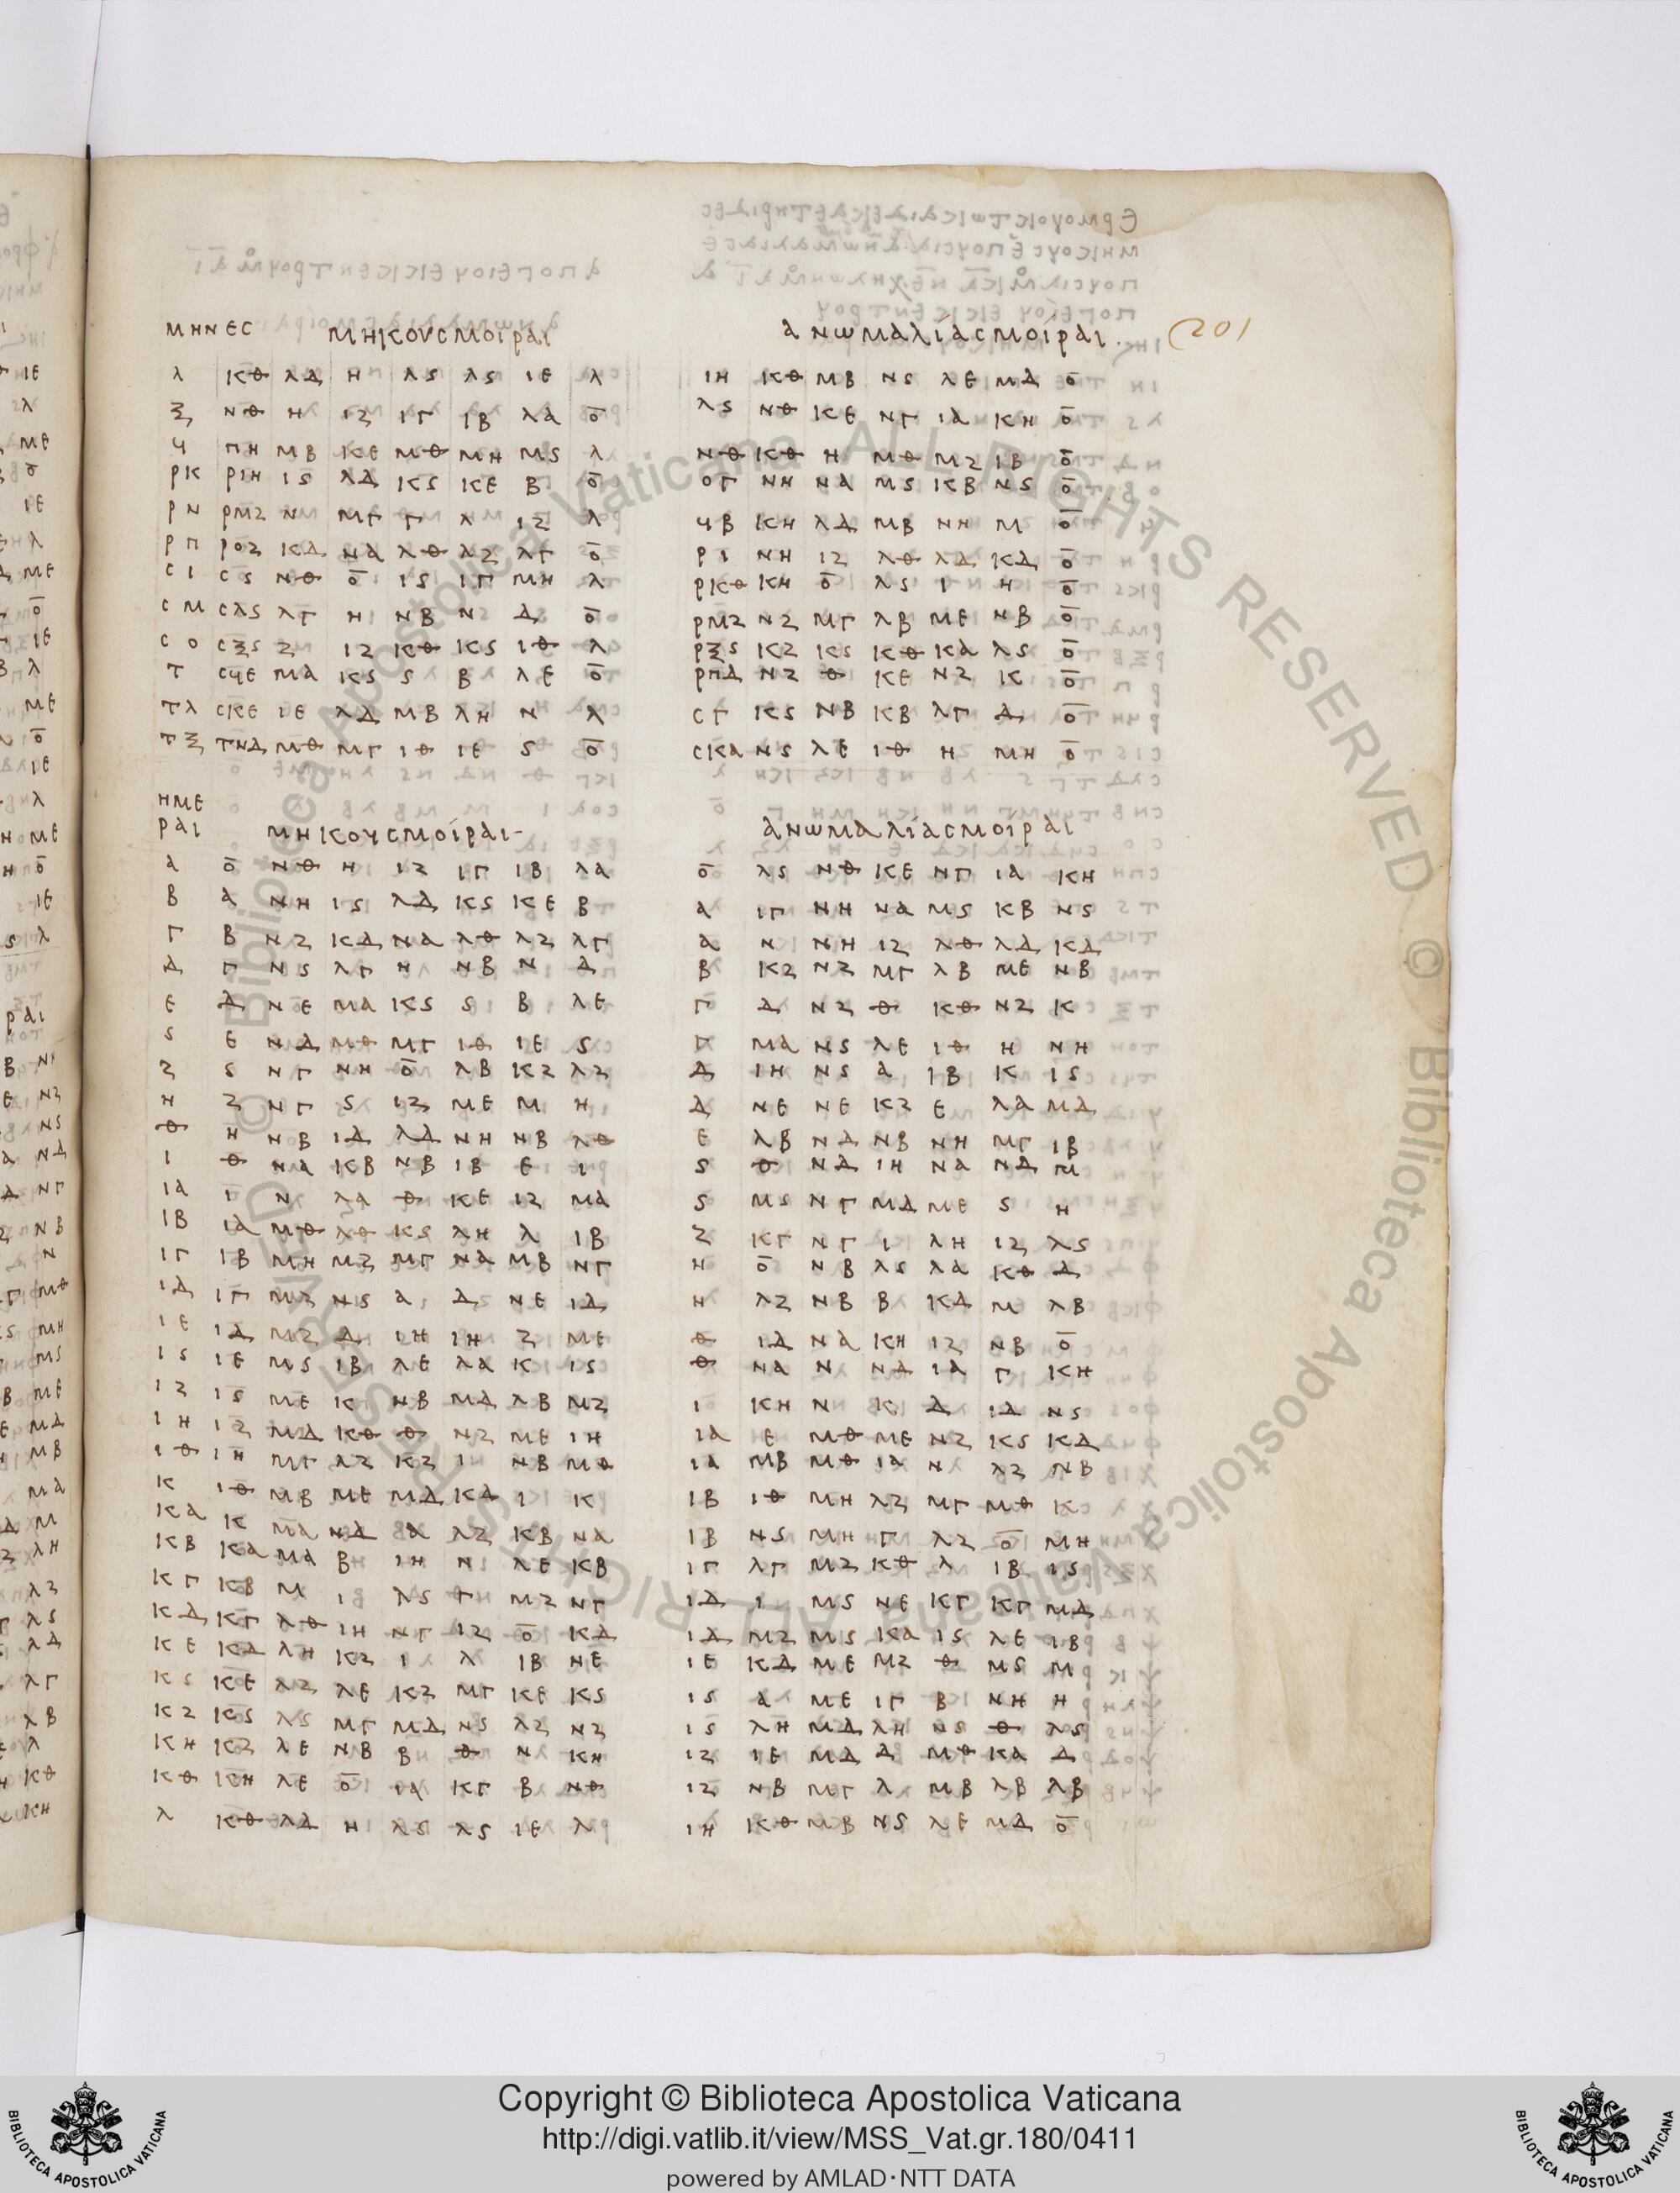 μηνες μηκους μοιραι ανωμαλίας μοίραι (201
λ κθ λδ η λϛ λϛ ιε λ ιη κθ μβ νϛ λε μδ ο̄
ξ νθ η ιζ ιγ ιβ λα ο̄ λϛ νθ κε νγ ια κη ο̄
ϟ πη μβ κε μθ μη μϛ λ νθ κθ η μθ μζ ιβ ο̄
ρκ ριη ιϛ λδ κϛ κε β ο̄ ογ νη να μϛ κβ νϛ ο̄
ρν ρμζ ν μγ γ λ ιζ λ ϟβ κη λδ μβ νη μ ο̄
ρπ ροζ κδ να λθ λζ λγ ο̄ ρι νη ιζ λθ λδ κδ ο̄
σι σϛ νθ ο̄ ιϛ ιγ μη λ ρκθ κη ο̄ λϛ ι η ο̄
σμ σλϛ λγ η νβ ν δ ο̄ ρμζ νζ μγ λβ με νβ ο̄
σο σξϛ ζ ιζ κθ κϛ ιθ λ ρξϛ κζ κϛ κθ κα λϛ ο̄
τ σϟε μα κϛ ϛ β λε ο̄ ρπδ νζ θ κε νζ κ ο̄
τλ σκε ιε λδ μβ λη ν λ σγ κϛ νβ κβ λγ δ ο̄
τξ τνδ μθ μγ ιθ ιε ϛ ο̄ σκα νϛ λε ιθ η μη ο̄
ημε
ραι μηκους μοίραι- ανωμαλίας μοίραι
α ο̄ νθ η ιζ ιγ ιβ λα ο̄ λϛ νθ κε νγ ια κη
β α νη ιϛ λδ κϛ κε β α ιγ νη να μϛ κβ νϛ
γ β νζ κδ να λθ λζ λγ α ν νη ιζ λθ λδ κδ
δ γ νϛ λγ η νβ ν δ β κζ νζ μγ λβ με νβ
ε δ νε μα κϛ ϛ β λε γ δ νζ θ κθ νζ κ
ϛ ε νδ μθ μγ ιθ ιε ϛ γ μα νϛ λε ιθ η νη
ζ ϛ νγ νη ο̄ λβ κζ λζ δ ιη νϛ α ιβ κ ιϛ
η ζ νγ ϛ ιζ με μ η δ νε νε κζ ε λα μδ
θ η νβ ιδ λδ νη νβ λθ ε λβ νδ νβ νη μγ ιβ
ι θ να κβ νβ ιβ ε ι ϛ θ νδ ιη να νδ μ
ια ι ν λα θ κε ιζ μα ϛ μϛ νγ μδ με ϛ η
ιβ ια μθ λθ κϛ λη λ ιβ ζ κγ νγ ι λη ιζ λϛ
ιγ ιβ μη μζ μγ να μβ νγ η ο̄ νβ λϛ λα κθ δ
ιδ ιγ μζ νϛ α δ νε ιδ η λζ νβ β κδ μ λβ
ιε ιδ μζ δ ιη ιη ζ με θ ιδ να κη ιζ νβ ο̄
ιϛ ιε μϛ ιβ λε λα κ ιϛ θ να ν νδ ια γ κη
ιζ ιϛ με κ νβ μδ λβ μζ ι κη ν κ δ ιδ νϛ
ιη ιζ μδ κθ θ νζ με ιη ια ε μθ με νζ κϛ κδ
ιθ ιη μγ λζ κζ ι νβ μθ ια μβ μθ ια ν λζ νβ
κ ιθ μβ με μδ κδ ι κ ιβ ιθ μη λζ μγ μθ κ
κα κ μα νδ α λζ κβ να ιβ νϛ μη γ λζ ο̄ μη
κβ κα μα β ιη ν λε κβ ιγ λγ μζ κθ λ ιβ ιϛ
κγ κβ μ ι λϛ γ μζ νγ ιδ ι μϛ νε κγ κγ μδ
κδ κγ λθ ιη νγ ιζ ο̄ κδ ιδ μζ μϛ κα ιϛ λε ιβ
κε κδ λη κζ ι λ ιβ νε ιε κδ με μζ θ μϛ μ
κϛ κε λζ λε κζ μγ κε κϛ ιϛ α με ιγ β νη η
κζ κϛ λϛ μγ μδ νϛ λζ νζ ιϛ λη μδ λη νϛ θ λϛ
κη κζ λε νβ β θ ν κη ιζ ιε μδ δ μθ κα δ
κθ κη λε ο̄ ια κγ β νθ ιζ νβ μγ λ μβ λβ λβ
λ κθ λδ η λϛ λϛ ιε λ ιη κθ μβ νϛ λε μδ ο̄
Copyright © Biblioteca Apostolica Vaticana
http://digi.vatlib.it/view/MSS_Vat.gr.180/0411
powered by AMLAD·NTT DATA
BIBLIOTECA APOSTOLICA VATICANA
BIBLIOTECA APOSTOLICA VATICANA